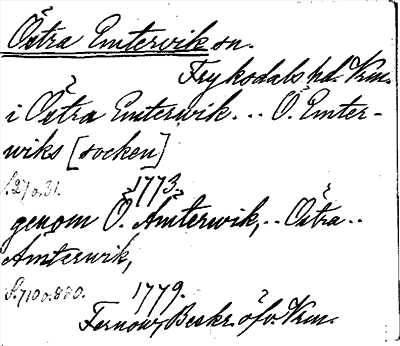 Östra Emtervik sn.
Fryksdals hd. Vrm.
i Östra Emterwik... Ö. Emter-
wiks [socken]
S.27 o. 31. 1773.
genom Ö. Ämterwik,.. Östra..
Ämterwik,
S.710 o. 880. 1779.
Fernow, Beskr. öfv. Vrm.